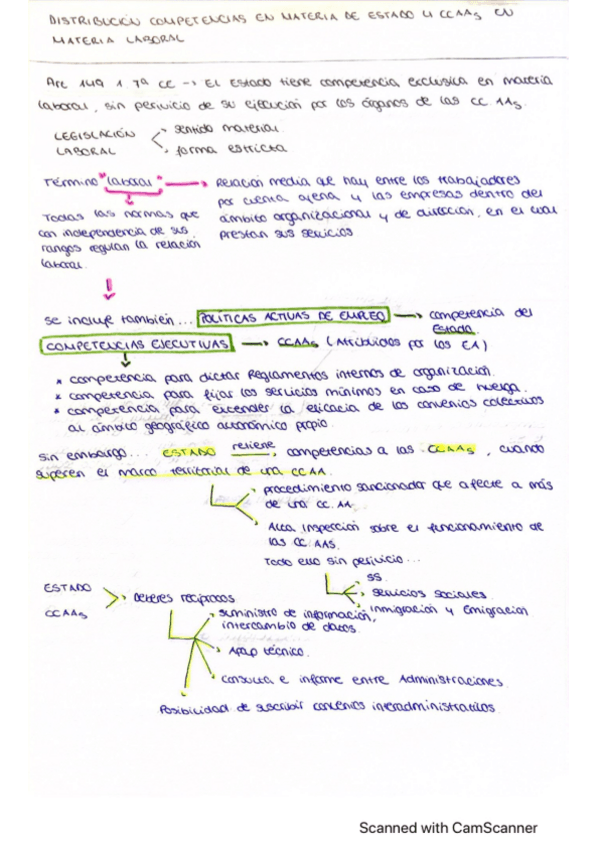 DISTRIBUCIÓN COMPETENCIAS EN MATERIA DE ESTADO Y CCAAs EN
MATERIA LABORAL
Art 149 1 7ª CE -> El Estado tiene competencia exclusiva en materia
laboral, sin perjuicio de su ejecución por los órganos de las CC.AAs.
LEGISLACIÓN
LABORAL
sentido material
forma estricta
Término "laboral" -> Relación media que hay entre los trabajadores
por cuenta ajena y las empresas dentro del
ámbito organizacional y de dirección, en el cual
prestan sus servicios
Todas las normas que
con independencia de sus
rangos regulan la relación
laboral.
se incluye también... POLÍTICAS ACTIVAS DE EMPLEO -> competencia del
Estado.
COMPETENCIAS EJECUTIVAS -> CCAAs (Atribuidos por los EA)
* competencia para dictar Reglamentos internos de organización.
* competencia para fijar los servicios mínimos en caso de huelga.
* competencia para extender la eficacia de los convenios colectivos
al ámbito geográfico autonómico propio.
sin embargo... ESTADO retiene, competencias a las CCAAs, cuando
superen el marco territorial de una CCAA.
procedimiento sancionador que afecte a más
de una CC.AA.
Alta Inspección sobre el funcionamiento de
las CC AAS.
Todo ello sin perjuicio...
SS.
servicios sociales.
inmigración y Emigración
ESTADO
CCAAs
Deberes recíprocos
suministro de información,
intercambio de datos.
Apoyo técnico.
consulta e informe entre Administraciones.
Posibilidad de suscribir convenios interadministrativos.
Scanned with CamScanner